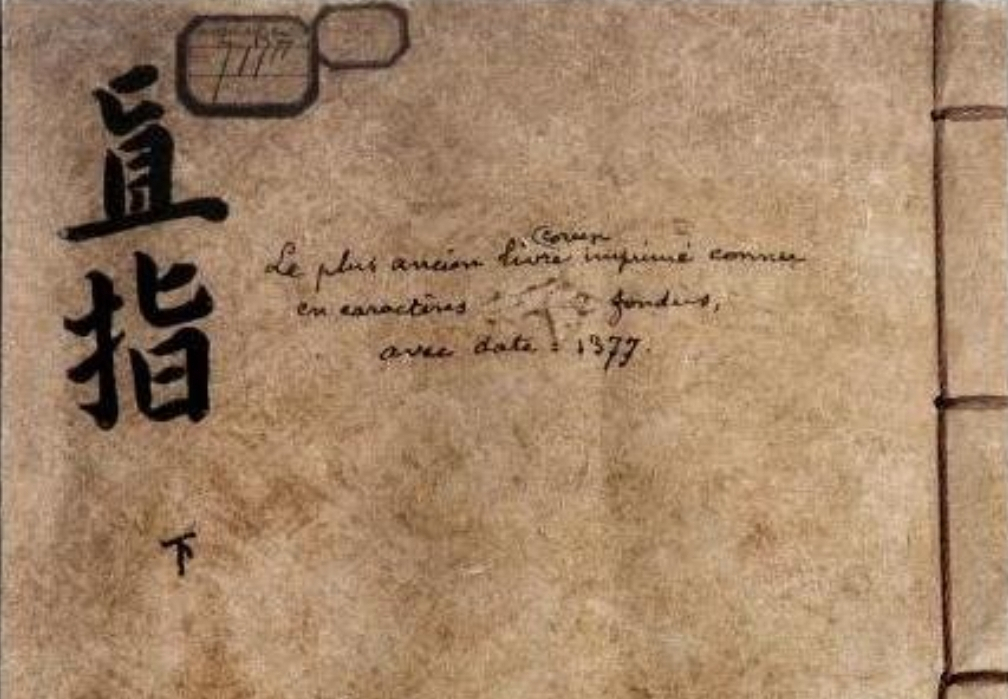 直指
下
Coréen
Le plus ancien livre imprimé connu
en caractères fondus,
avec date = 1377.